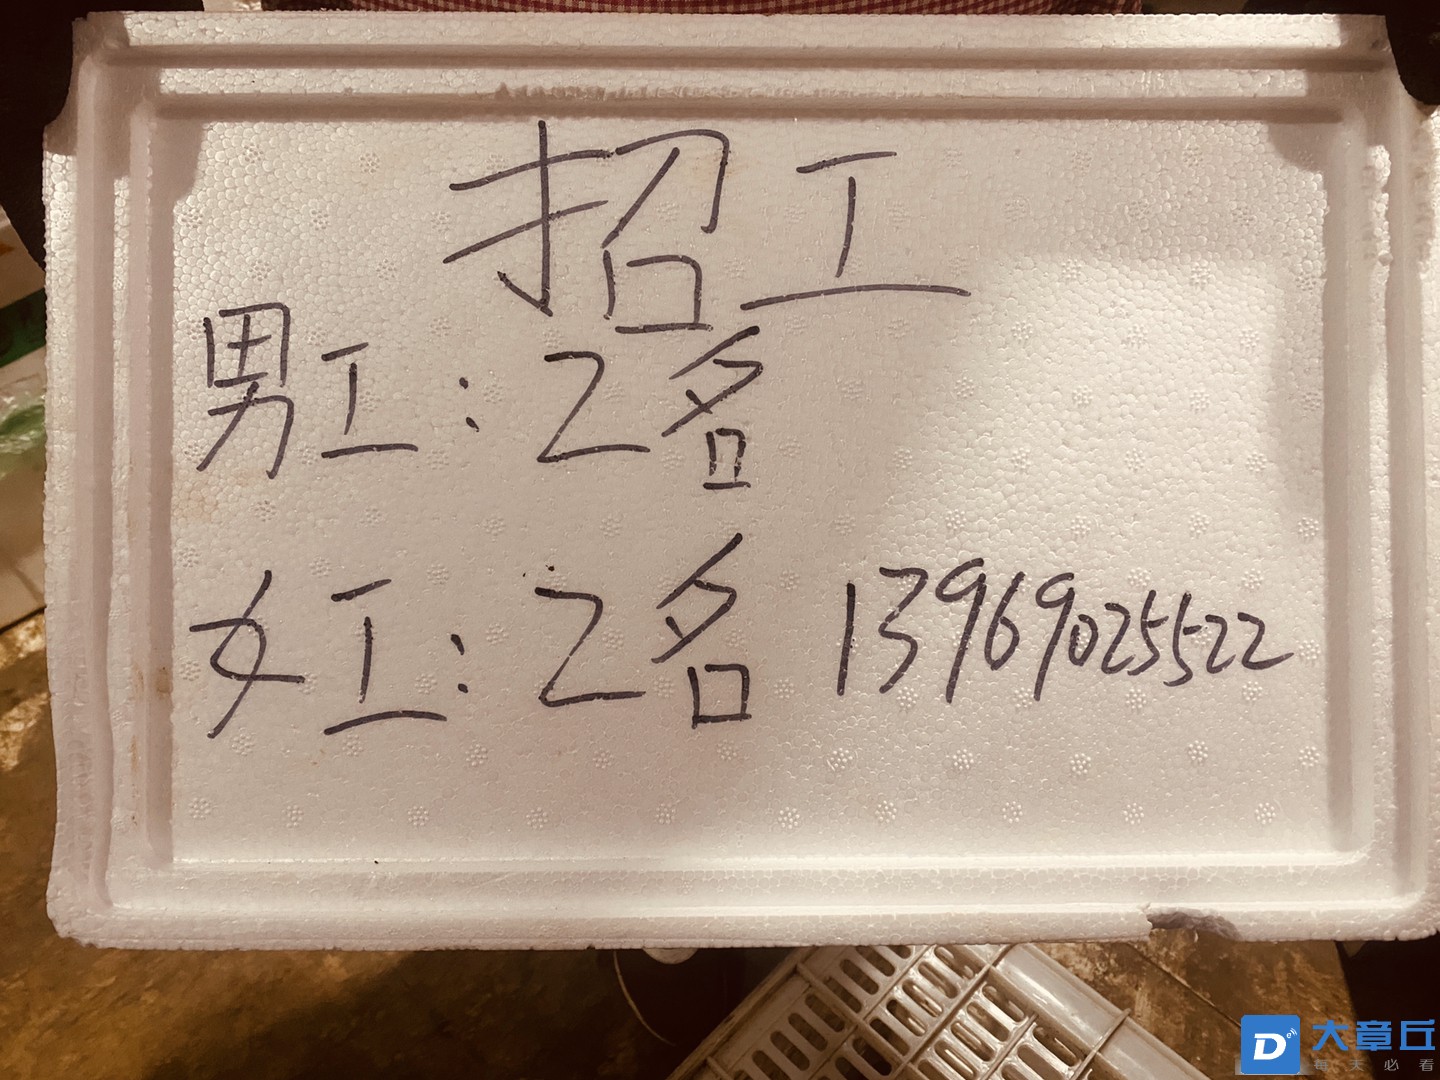 招工
男工：2名
女工：2名 13969025522
大章丘
每天必看